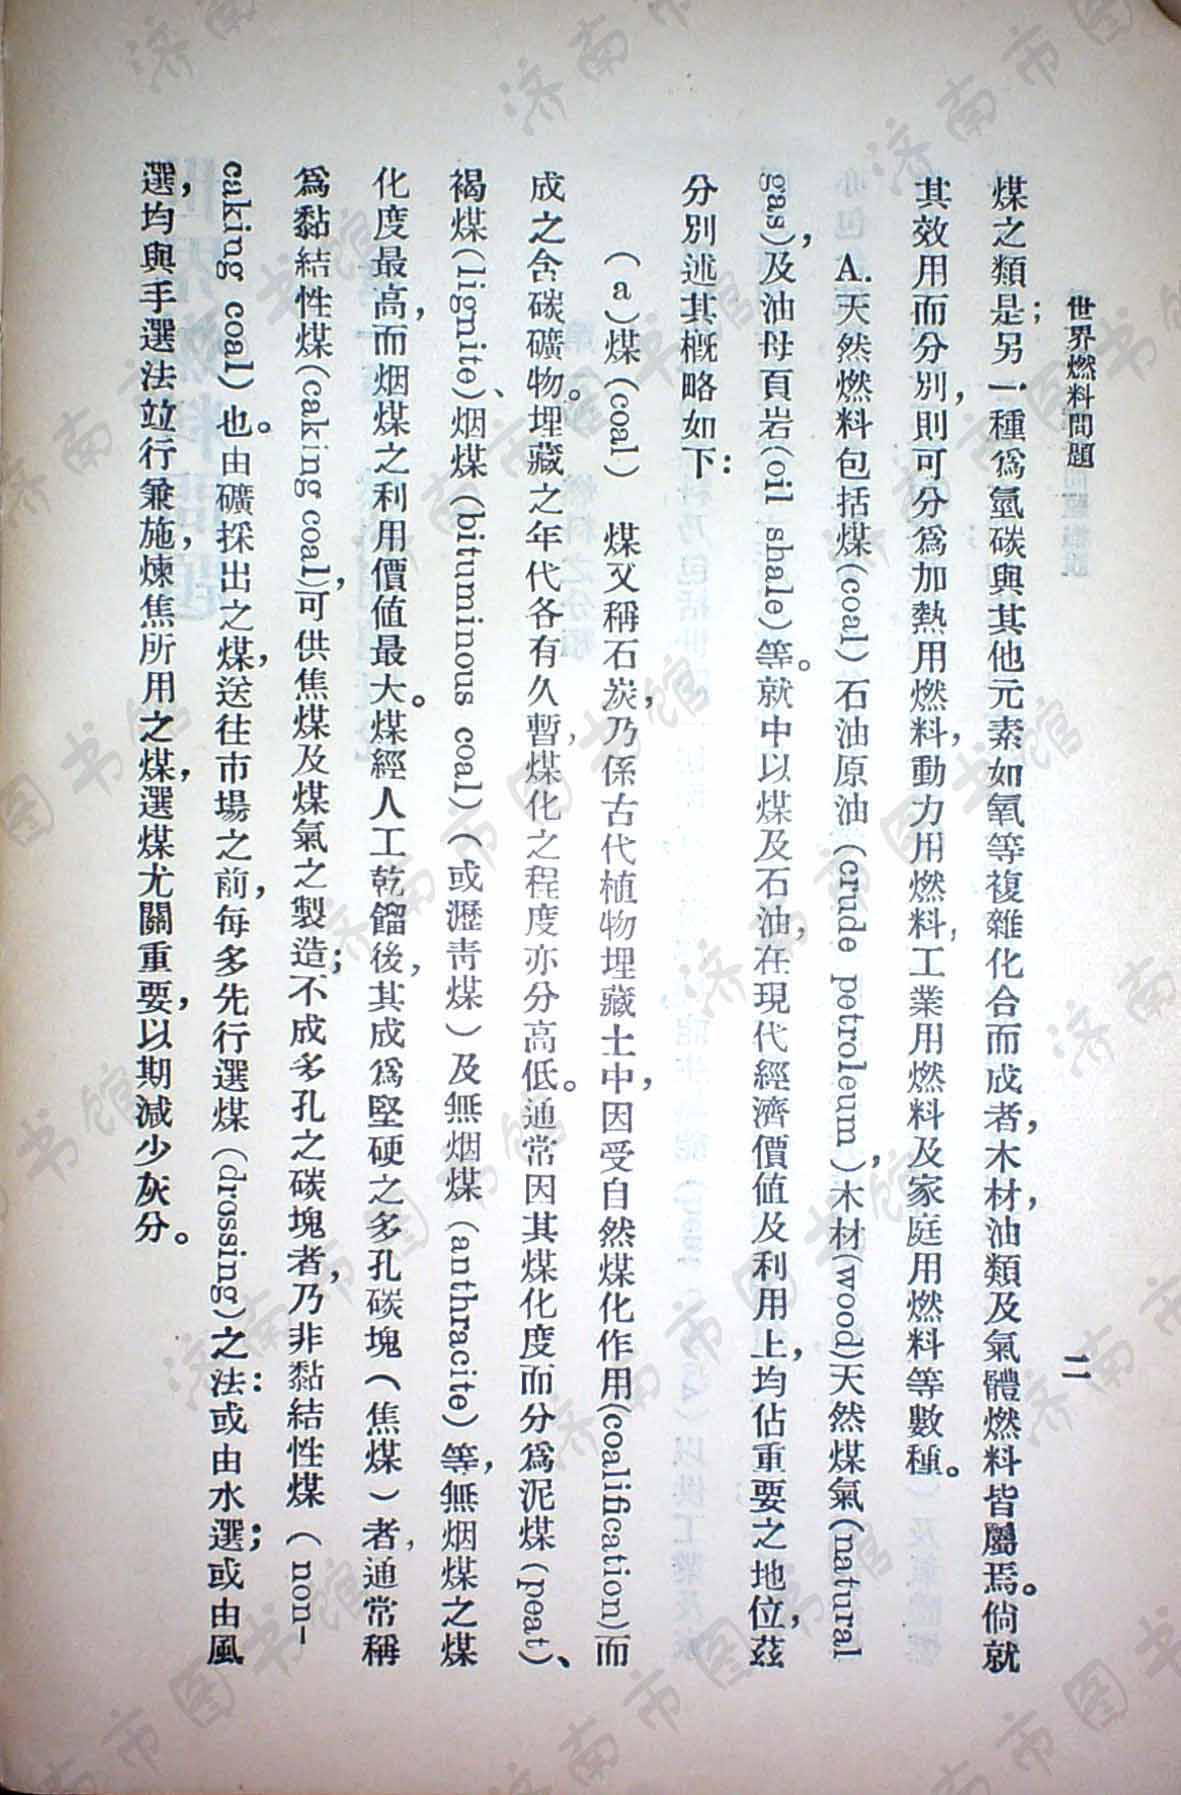 世界燃料問題
二
煤之類是；另一種爲氫碳與其他元素如氧等複雜化合而成者，木材，油類及氣體燃料皆屬焉。倘就
其效用而分別，則可分爲加熱用燃料，動力用燃料，工業用燃料及家庭用燃料等數種。
A.天然燃料包括煤(coal)石油原油(crude petroleum)，木材(wood)天然煤氣(natural
gas)，及油母頁岩(oil shale)等。就中以煤及石油，在現代經濟價值及利用上，均佔重要之地位，茲
分別述其概略如下：
(a)煤(coal) 煤又稱石炭，乃係古代植物埋藏土中，因受自然煤化作用(coalification)而
成之含碳礦物。埋藏之年代各有久暫，煤化之程度亦分高低。通常因其煤化度而分爲泥煤(peat)、
褐煤(lignite)、烟煤(bituminous coal)(或瀝青煤)及無烟煤(anthracite)等，無烟煤之煤
化度最高，而烟煤之利用價值最大。煤經人工乾餾後，其成爲堅硬之多孔碳塊(焦煤)者，通常稱
爲黏結性煤(caking coal)，可供焦煤及煤氣之製造；不成多孔之碳塊者，乃非黏結性煤(non-
caking coal)也。由礦採出之煤，送往市場之前，每多先行選煤(drossing)之法：或由水選；或由風
選，均與手選法竝行兼施，煉焦所用之煤，選煤尤關重要，以期減少灰分。